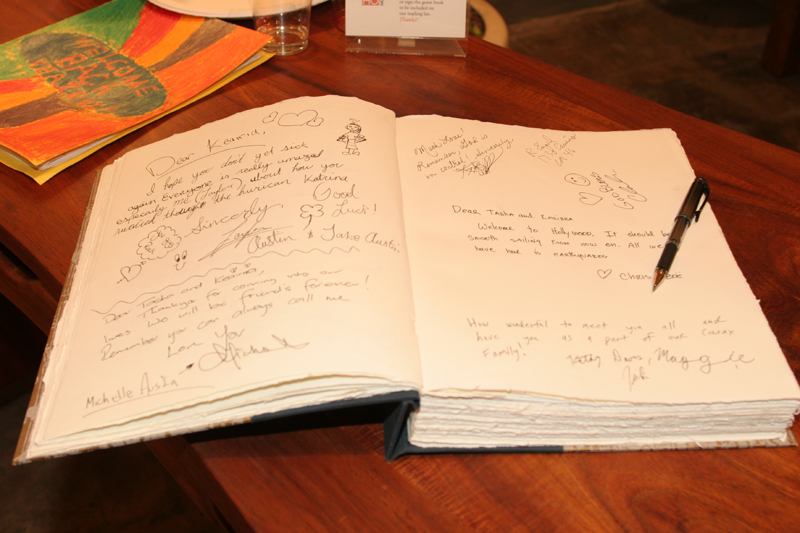 WELCOME
BACK
or sign the guest book
to be included on
our mailing list.
Thanks!
Dear
I hope you don't get sick
again everyone is really amazed
especialy me (Taylor) about how you
survived throught the hurican Katrina
Good
Luck!
Sincerly,
Austin & Jake Austin
Dear Tasha and
Thankyou for coming into our
lives. We will be friends forever!
Remember you can always call me
Love You
Michelle Austin
Much Love!
Remember God is
in control! Sincerely,
God Bless
Dear Tasha and
Welcome to Hollywood. It should be
smooth sailing from now on. All we
have here is earthquakes
Chris
How wonderful to meet you all and
have you as a part of our
Family!
Kathy Davis, Maggie